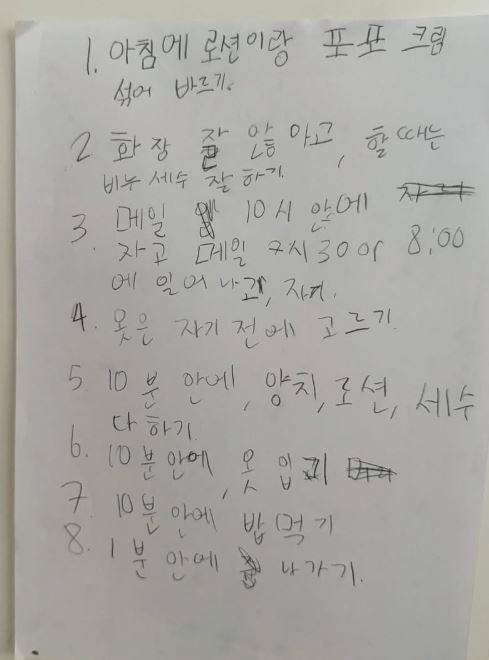 1. 아침에 로션이랑 포포 크림
섞어 바르기.
2 화장 잘 안 하고, 할 때는
비누 세수 잘 하기.
3. 메일 10시 안에
자고 메일 7시 30 or 8:00
에 일어나고,
4. 옷은 자기 전에 고르기.
5. 10분 안에, 양치, 로션, 세수
다 하기.
6. 10분 안에, 옷 입기
7 10분 안에 밥 먹기
8. 1분 안에 나가기.